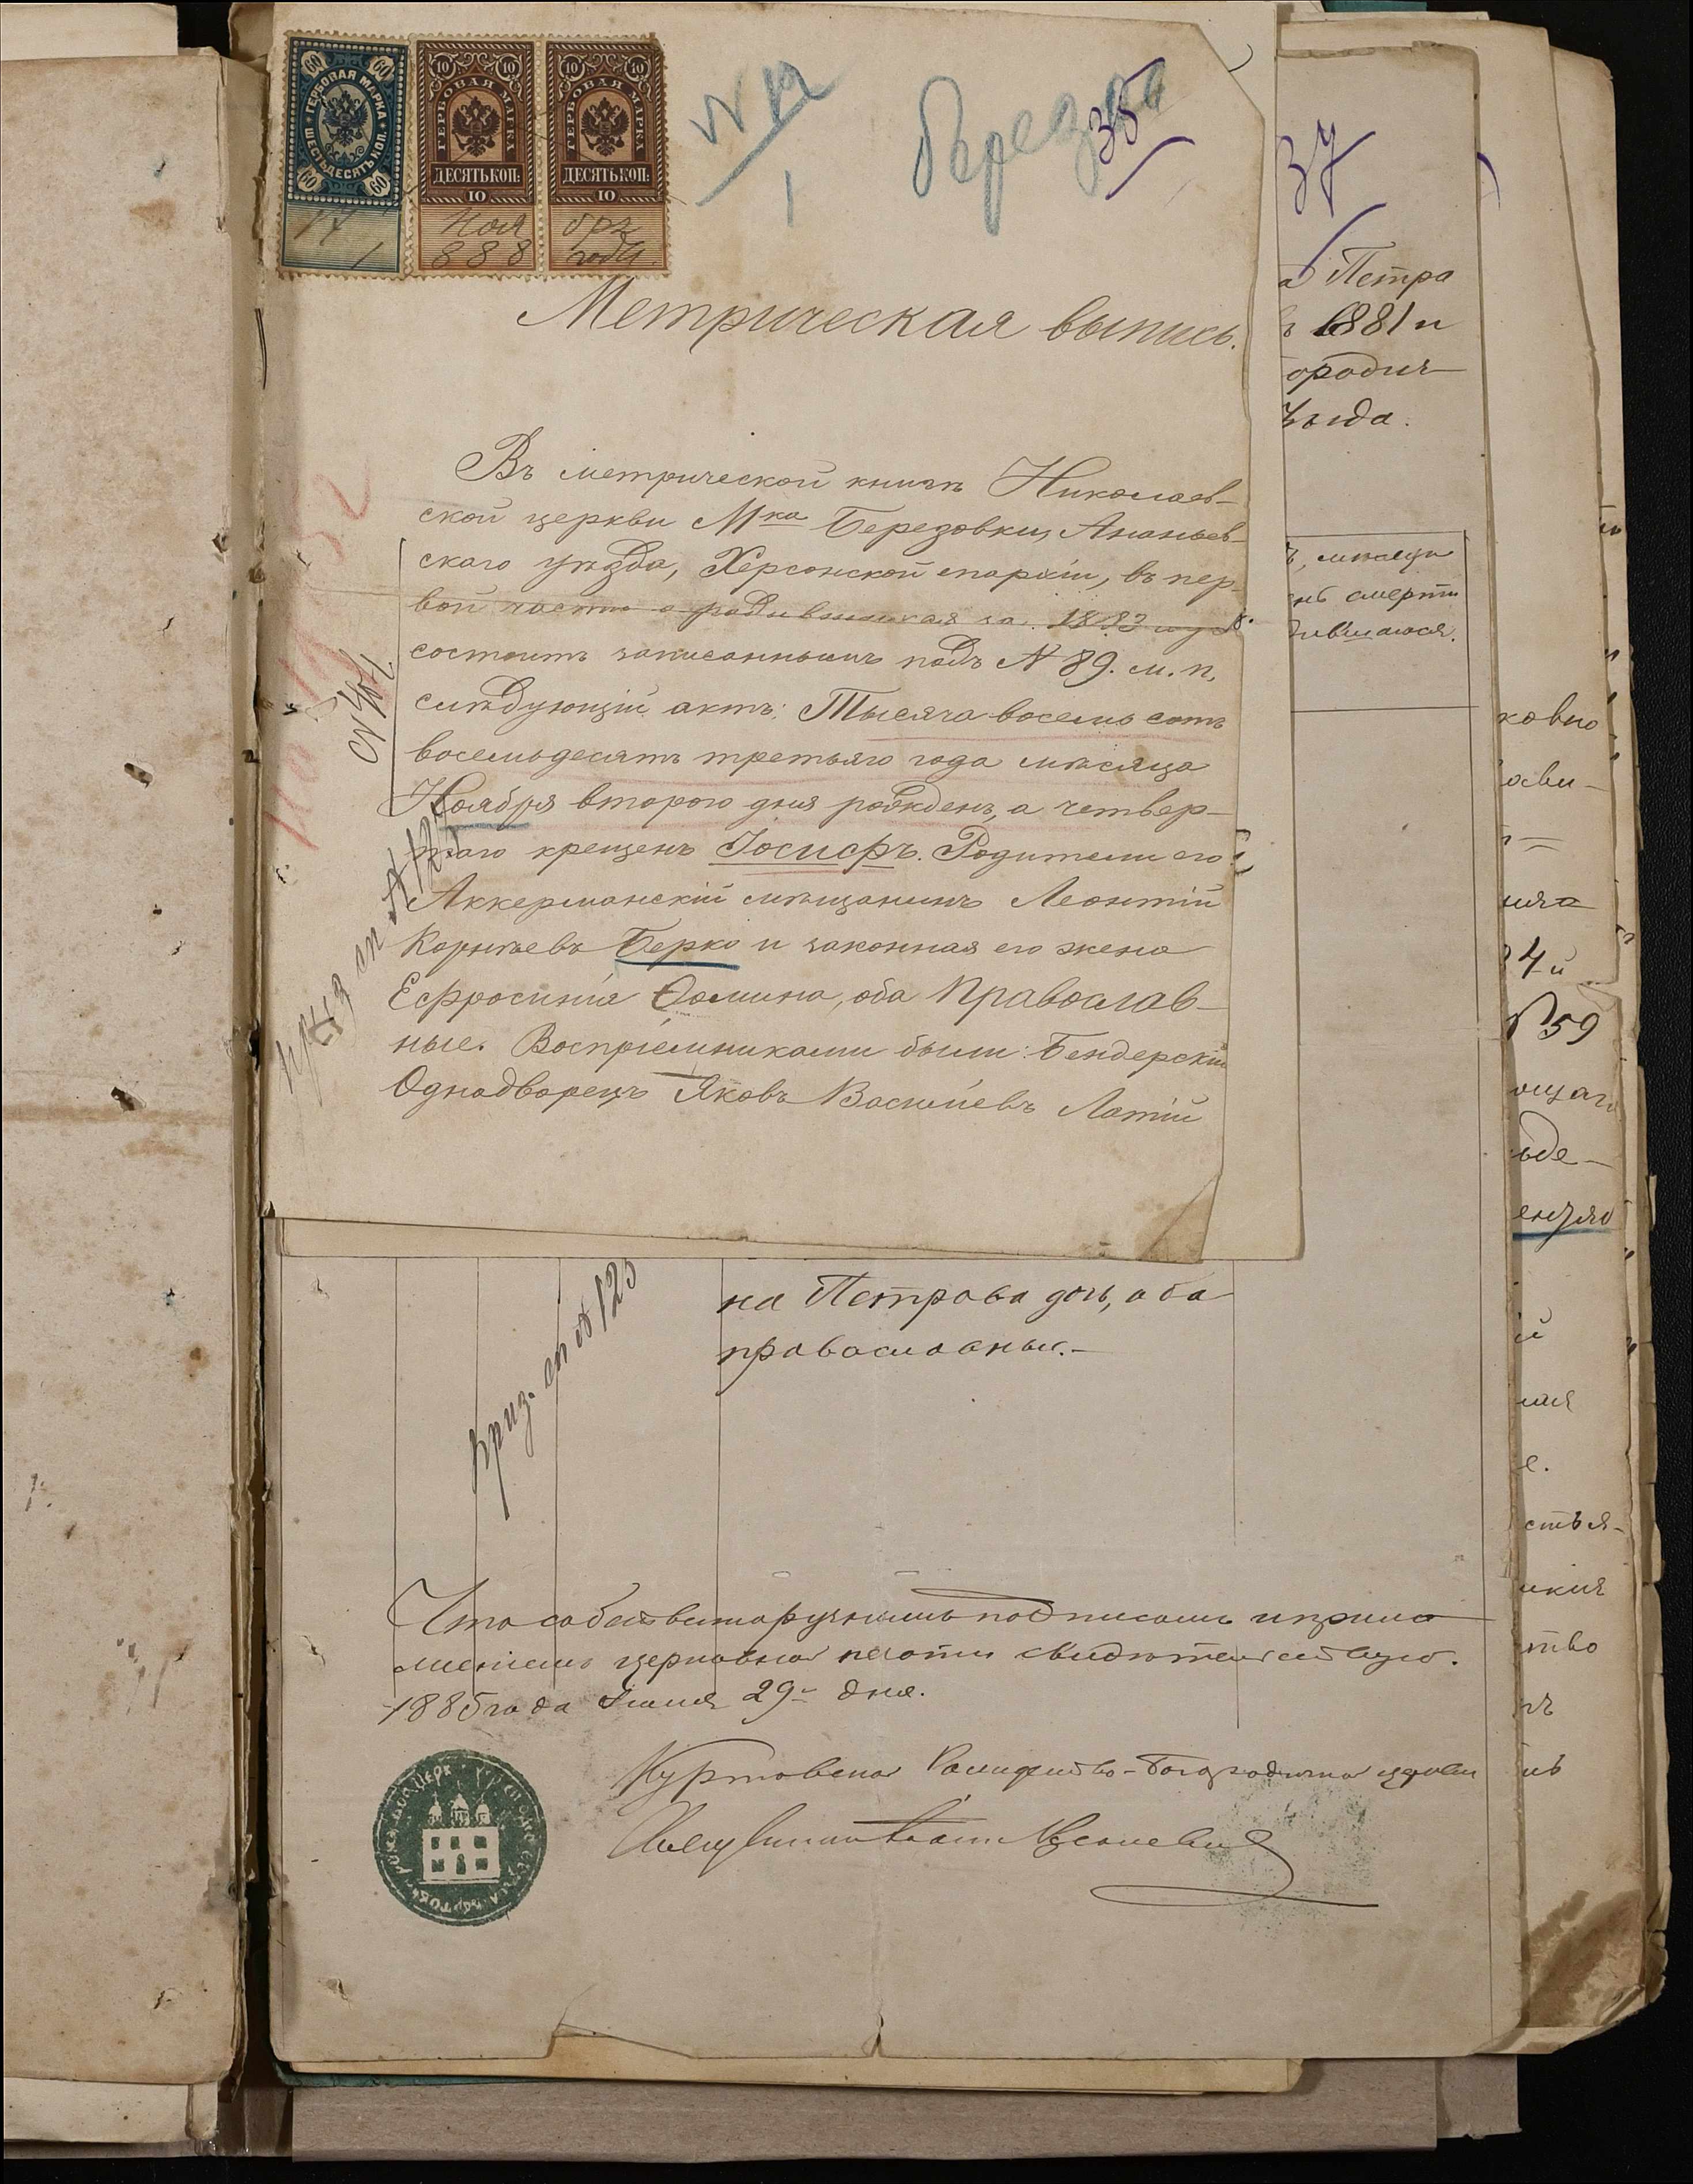 60 60
ГЕРБОВАЯ МАРКА
ШЕСТЬДЕСЯТЪ КОП.
60 60
17
1
10 10
ГЕРБОВАЯ МАРКА
ДЕСЯТЬ КОП:
10
Ноя
888
10 10
ГЕРБОВАЯ МАРКА
ДЕСЯТЬ КОП:
10
бря
года
N 12
1
38
Метрическая выпись.
Въ метрической книгѣ Николаев-
ской церкви Мка Березовки, Ананьев-
скаго уѣзда, Херсонской епархіи, въ пер-
вой части о родившихся за 1883 годъ
состоитъ записаннымъ подъ N 89. м. п.
слѣдующій актъ: Тысяча восемь сотъ
восемьдесятъ третьяго года мѣсяца
Ноября второго дня рожденъ, а четвер-
таго крещенъ Іосифъ. Родители его:
Аккерманскій мѣщанинъ Леонтій
Корнѣевъ Берко и законная его жена
Ефросинія Ѳомина, оба Православ-
ные. Воспріемниками были: Бендерскій
Однодворецъ Яковъ Василіевъ Латій
37
Петра
1881 и
ородич
ѣзда.
ъ, мѣсяцъ
нь смерти
дившагося.
на Петрова дочь, оба
православные.-
приз. сп N 125
Что собственноручнымъ подписомъ и прило
женіемъ церковной печати свидѣтельствую.
1885 года Іюня 29го дня.
Куртовской Рождество-Богородичной церкви
ковно
4й
N 59
ощаго
енząю
стья-
ство